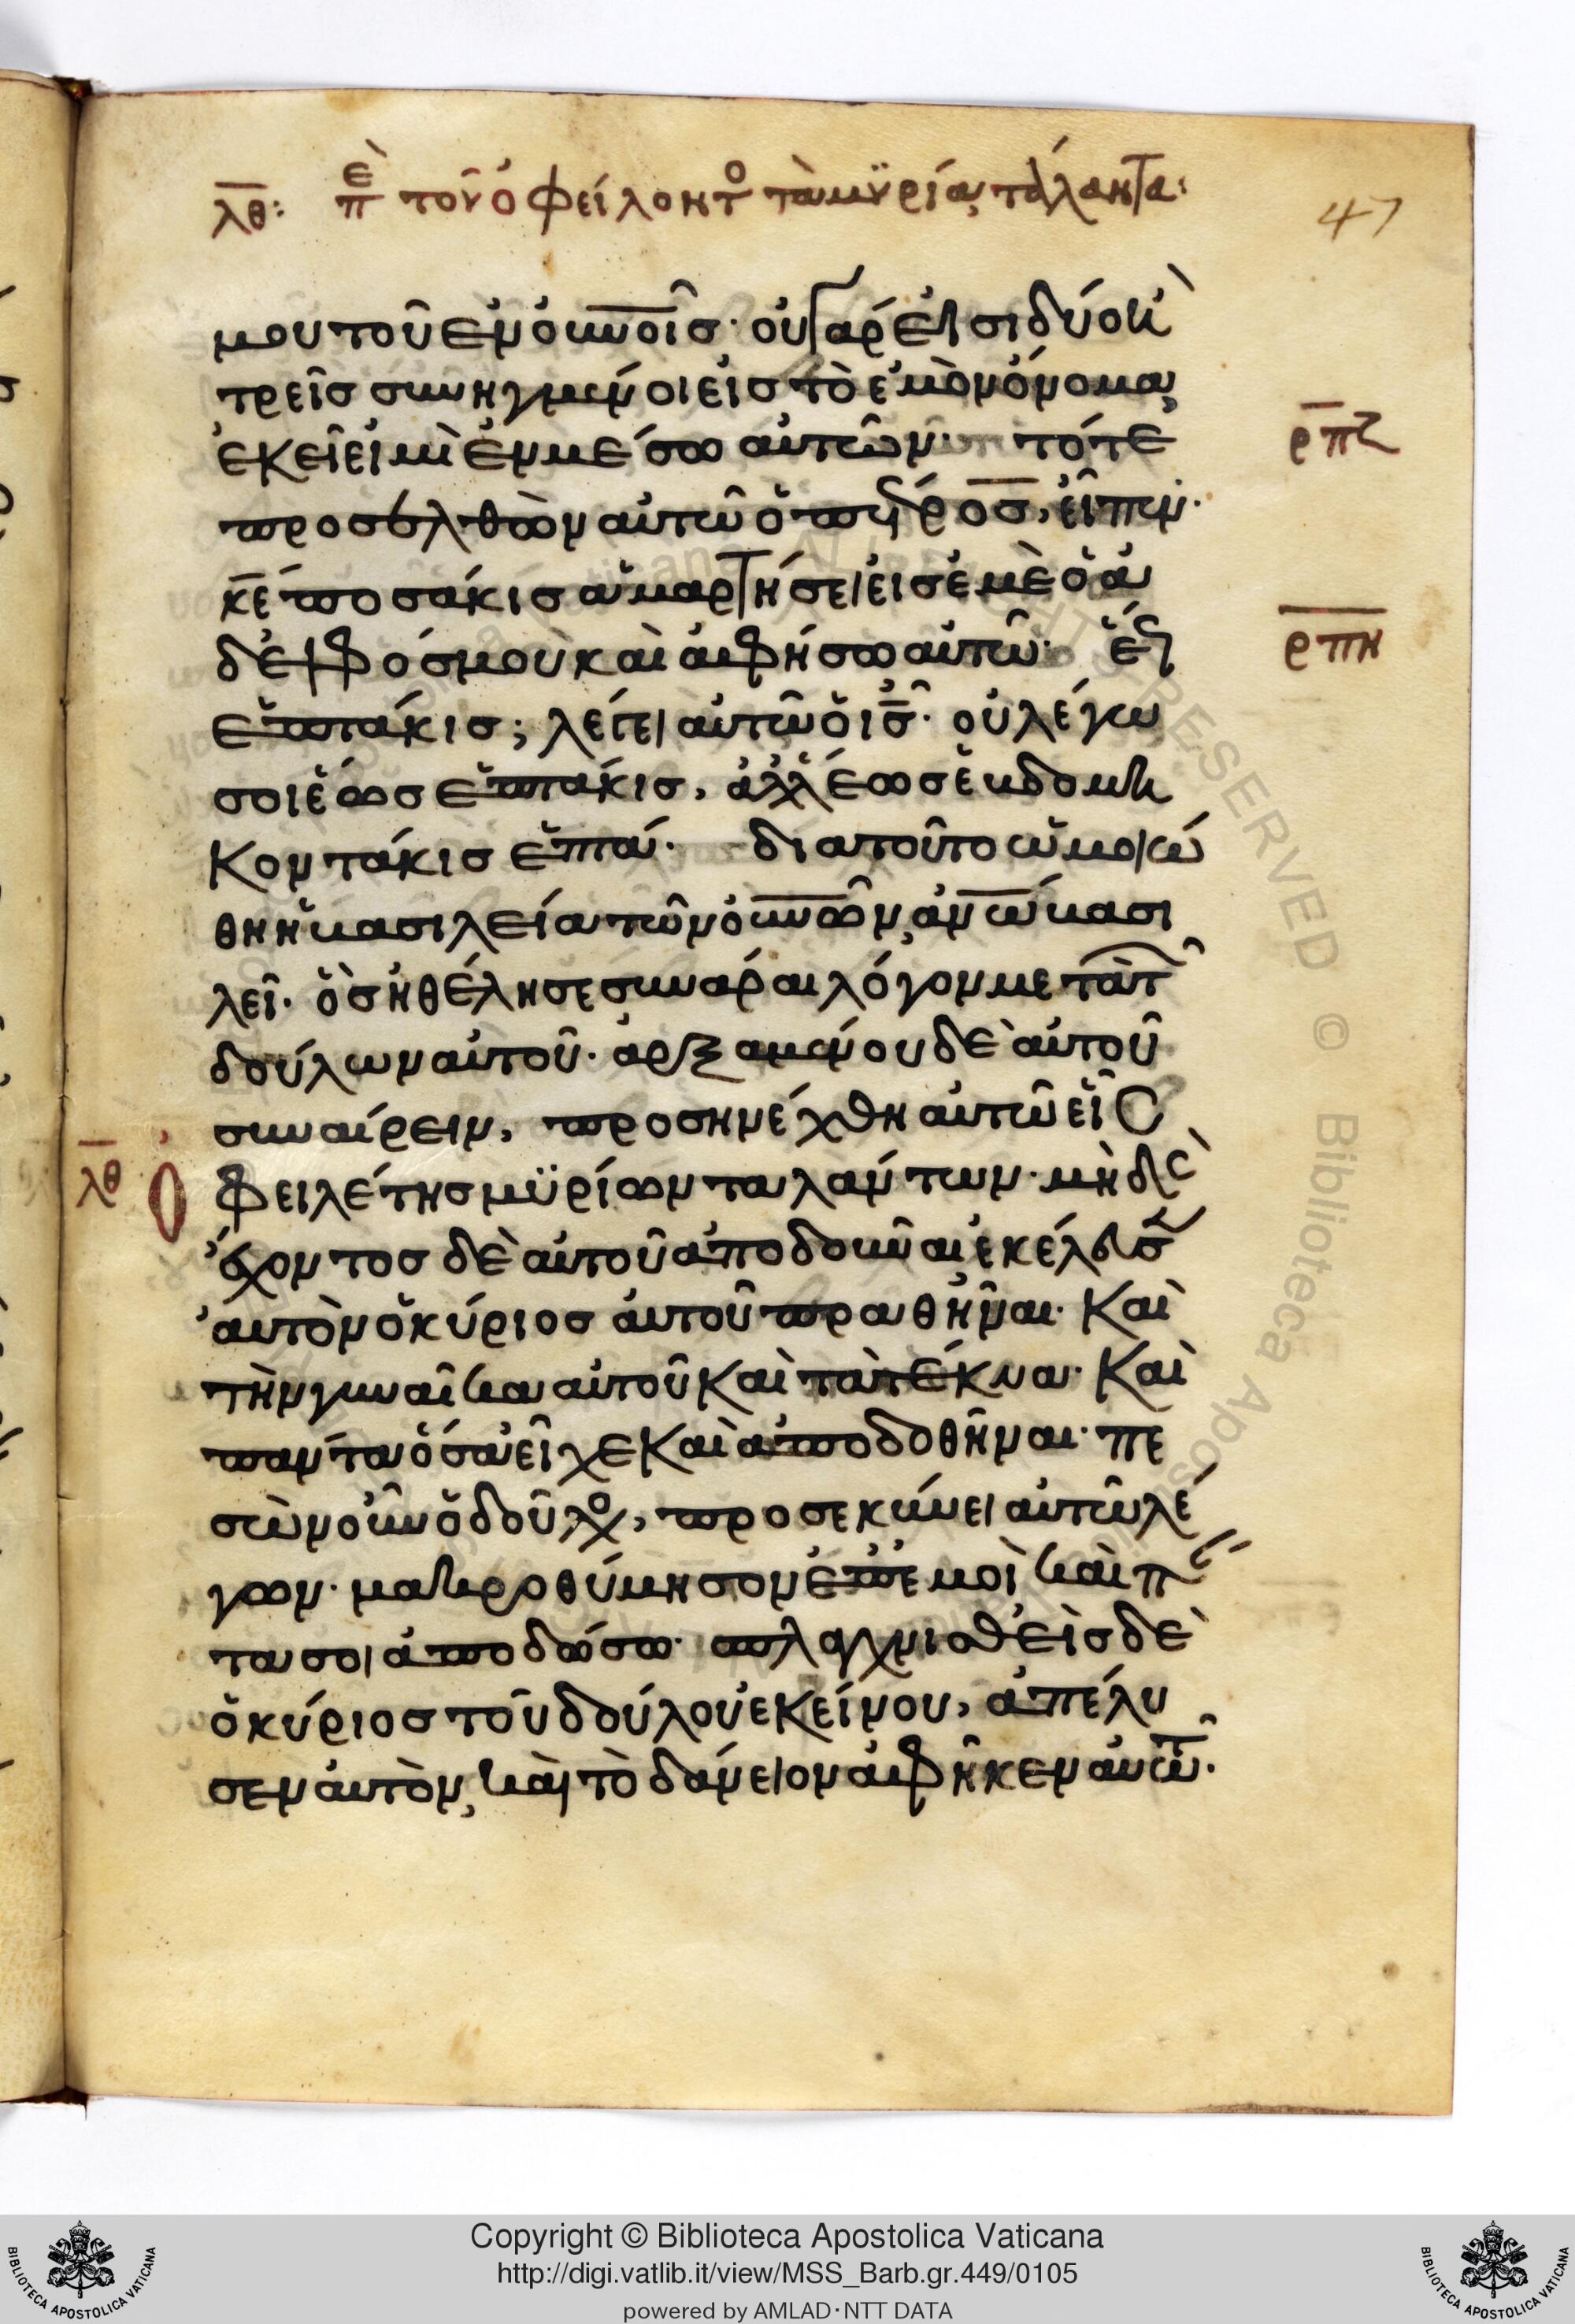 λθ: πε τὸν ὀφείλοντο τὰ μύρια τάλαντα:
47
μου τοῦ ἐν οὐνοῖσ· οὐ γάρ εἰσι δύο ἢ
τρεῖσ συνηγμένοι εἰσ τὸ ἐμὸν ὄνομα,
ρπζ
ἐκεῖ εἰμὶ ἐν μέσω αὐτῶν· τότε
προσελθὼν αὐτῶ ὁ πέτροσ, εἶπεν·
κε ποσάκισ ἁμαρτήσει εἰσ ἐμὲ ὁ ἀ
ρπη
δελφόσ μου καὶ ἀφήσω αὐτῶ· ἕωσ
ἑπτάκισ; λέγει αὐτῶ ὁ ισ· οὐ λέγω
σοι ἕωσ ἑπτάκισ, ἀλλ' ἕωσ ἑβδομη
κοντάκισ ἑπτά· διατοῦτο ὡμοιώ
θη ἡ βασιλεία τῶν οὐνῶν, ἀνω βασι
λεῖ· ὃσ ἠθέλησε συνᾶραι λόγον μετὰ τ
δούλων αὐτοῦ· ἀρξαμένου δὲ αὐτοῦ
συναίρειν, προσηνέχθη αὐτῶ εἷσ
λθ ὀ
φειλέτησ μϋρίων ταλάντων· μὴ δὲ
ἔχοντοσ δὲ αὐτοῦ ἀποδοῦναι ἐκέλευσ
αὐτὸν ὁ κύριοσ αὐτοῦ πραθῆναι· καὶ
τὴν γυναῖκα αὐτοῦ καὶ τὰ τέκνα· καὶ
πάντα ὅσα εἶχε καὶ ἀποδοθῆναι· πε
σὼν οὖν ὁ δοῦλο, προσεκύνει αὐτῶ λέ
γων· μακροθύμησον ἐπ' ἐμοὶ καὶ π
τα σοι ἀποδώσω· σπλαγχνισθεὶσ δὲ
ὁ κύριοσ τοῦ δούλου ἐκείνου, ἀπέλυ
σεν αὐτὸν, καὶ τὸ δάνειον ἀφῆκεν αὐτῶ.
Copyright © Biblioteca Apostolica Vaticana
http://digi.vatlib.it/view/MSS_Barb.gr.449/0105
powered by AMLAD·NTT DATA
BIBLIOTECA APOSTOLICA VATICANA
BIBLIOTECA APOSTOLICA VATICANA